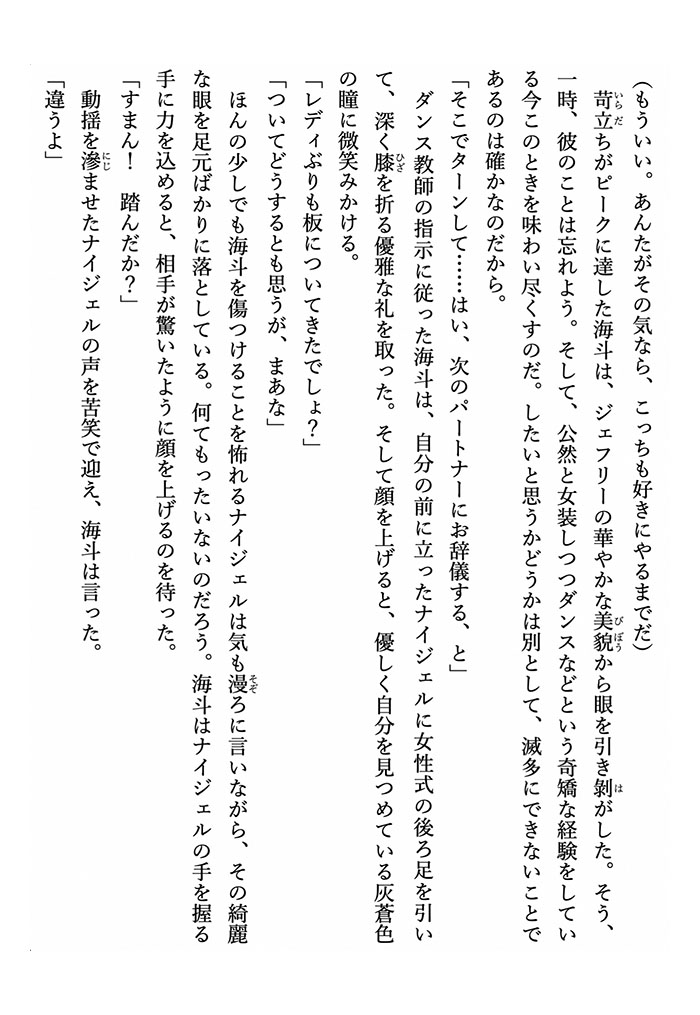 (もういい。あんたがその気なら、こっちも好きにやるまでだ)
苛立ちがピークに達した海斗は、ジェフリーの華やかな美貌から眼を引き剝がした。そう、
一時、彼のことは忘れよう。そして、公然と女装しつつダンスなどという奇矯な経験をしてい
る今このときを味わい尽くすのだ。したいと思うかどうかは別として、滅多にできないことで
あるのは確かなのだから。
「そこでターンして……はい、次のパートナーにお辞儀する、と」
ダンス教師の指示に従った海斗は、自分の前に立ったナイジェルに女性式の後ろ足を引い
て、深く膝を折る優雅な礼を取った。そして顔を上げると、優しく自分を見つめている灰蒼色
の瞳に微笑みかける。
「レディぶりも板についてきたでしょ？」
「ついてどうするとも思うが、まあな」
ほんの少しでも海斗を傷つけることを怖れるナイジェルは気も漫ろに言いながら、その綺麗
な眼を足元ばかりに落としている。何てもったいないのだろう。海斗はナイジェルの手を握る
手に力を込めると、相手が驚いたように顔を上げるのを待った。
「すまん！　踏んだか？」
動揺を滲ませたナイジェルの声を苦笑で迎え、海斗は言った。
「違うよ」